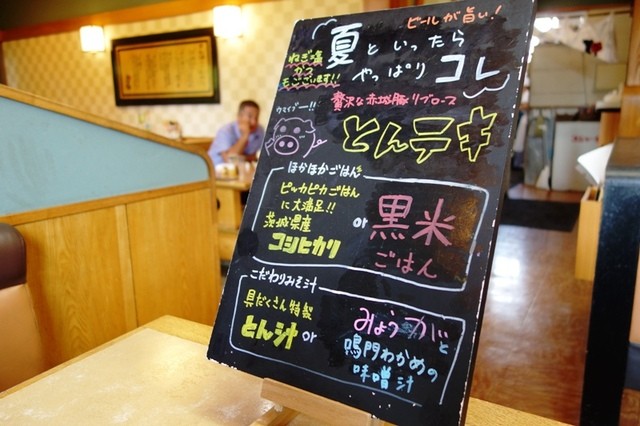 ビールが旨い!
夏といったら
やっぱりコレ
ねぎ塩
かつ
もございます!!
贅沢な赤城豚リブロース
ウマイブー!!
とんテキ
ほかほかごはん
ピッカピカごはん
に大満足!!
茨城県産
コシヒカリ
or
黒米
ごはん
こだわりみそ汁
具だくさん特製
とん汁 or
みょうがと
鳴門わかめの
味噌汁